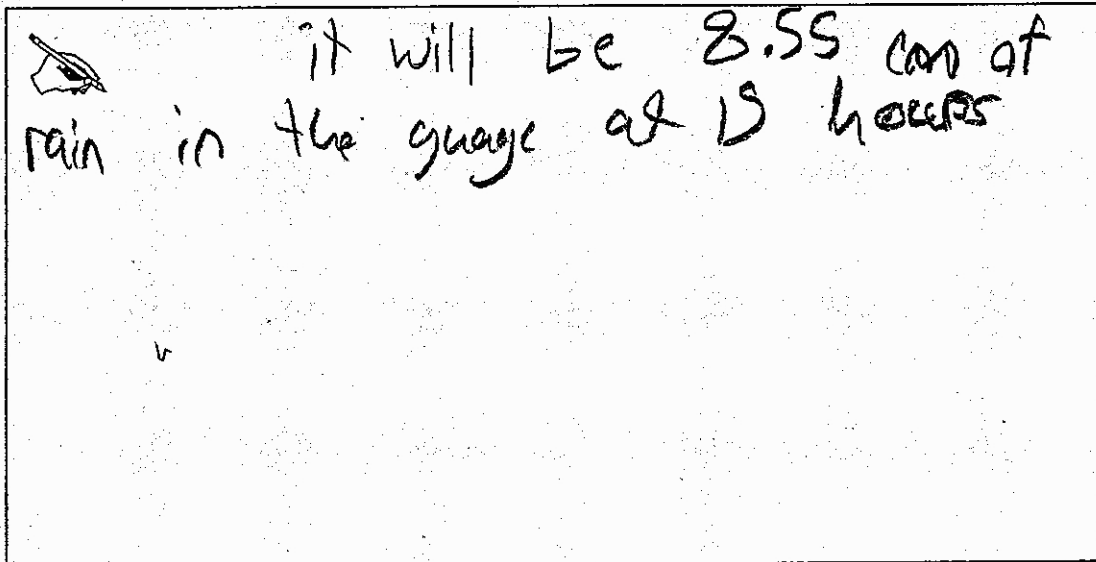 it will be 8.55 cm of
rain in the guage at 15 hours